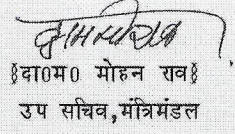 §दा0म0 मोहन राव§
उप सचिव,मंत्रिमंडल